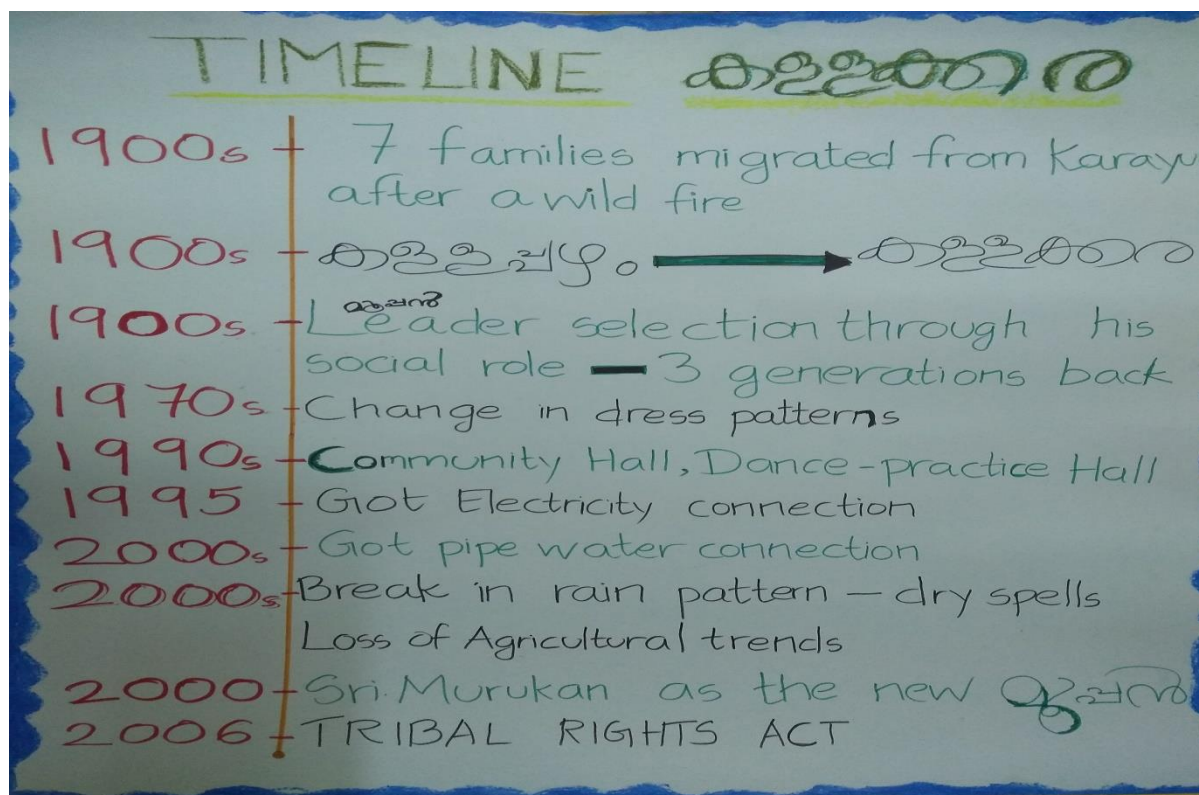 TIMELINE കള്ളക്കര
1900s 7 families migrated from Karayu
after a wild fire
1900s കള്ളച്ചുഴം → കള്ളക്കര
മൂപ്പൻ
1900s Leader selection through his
social role — 3 generations back
1970s Change in dress patterns
1990s Community Hall, Dance-practice Hall
1995 Got Electricity connection
2000s Got pipe water connection
2000s Break in rain pattern — dry spells
Loss of Agricultural trends
2000 Sri. Murukan as the new മൂപ്പൻ
2006 TRIBAL RIGHTS ACT